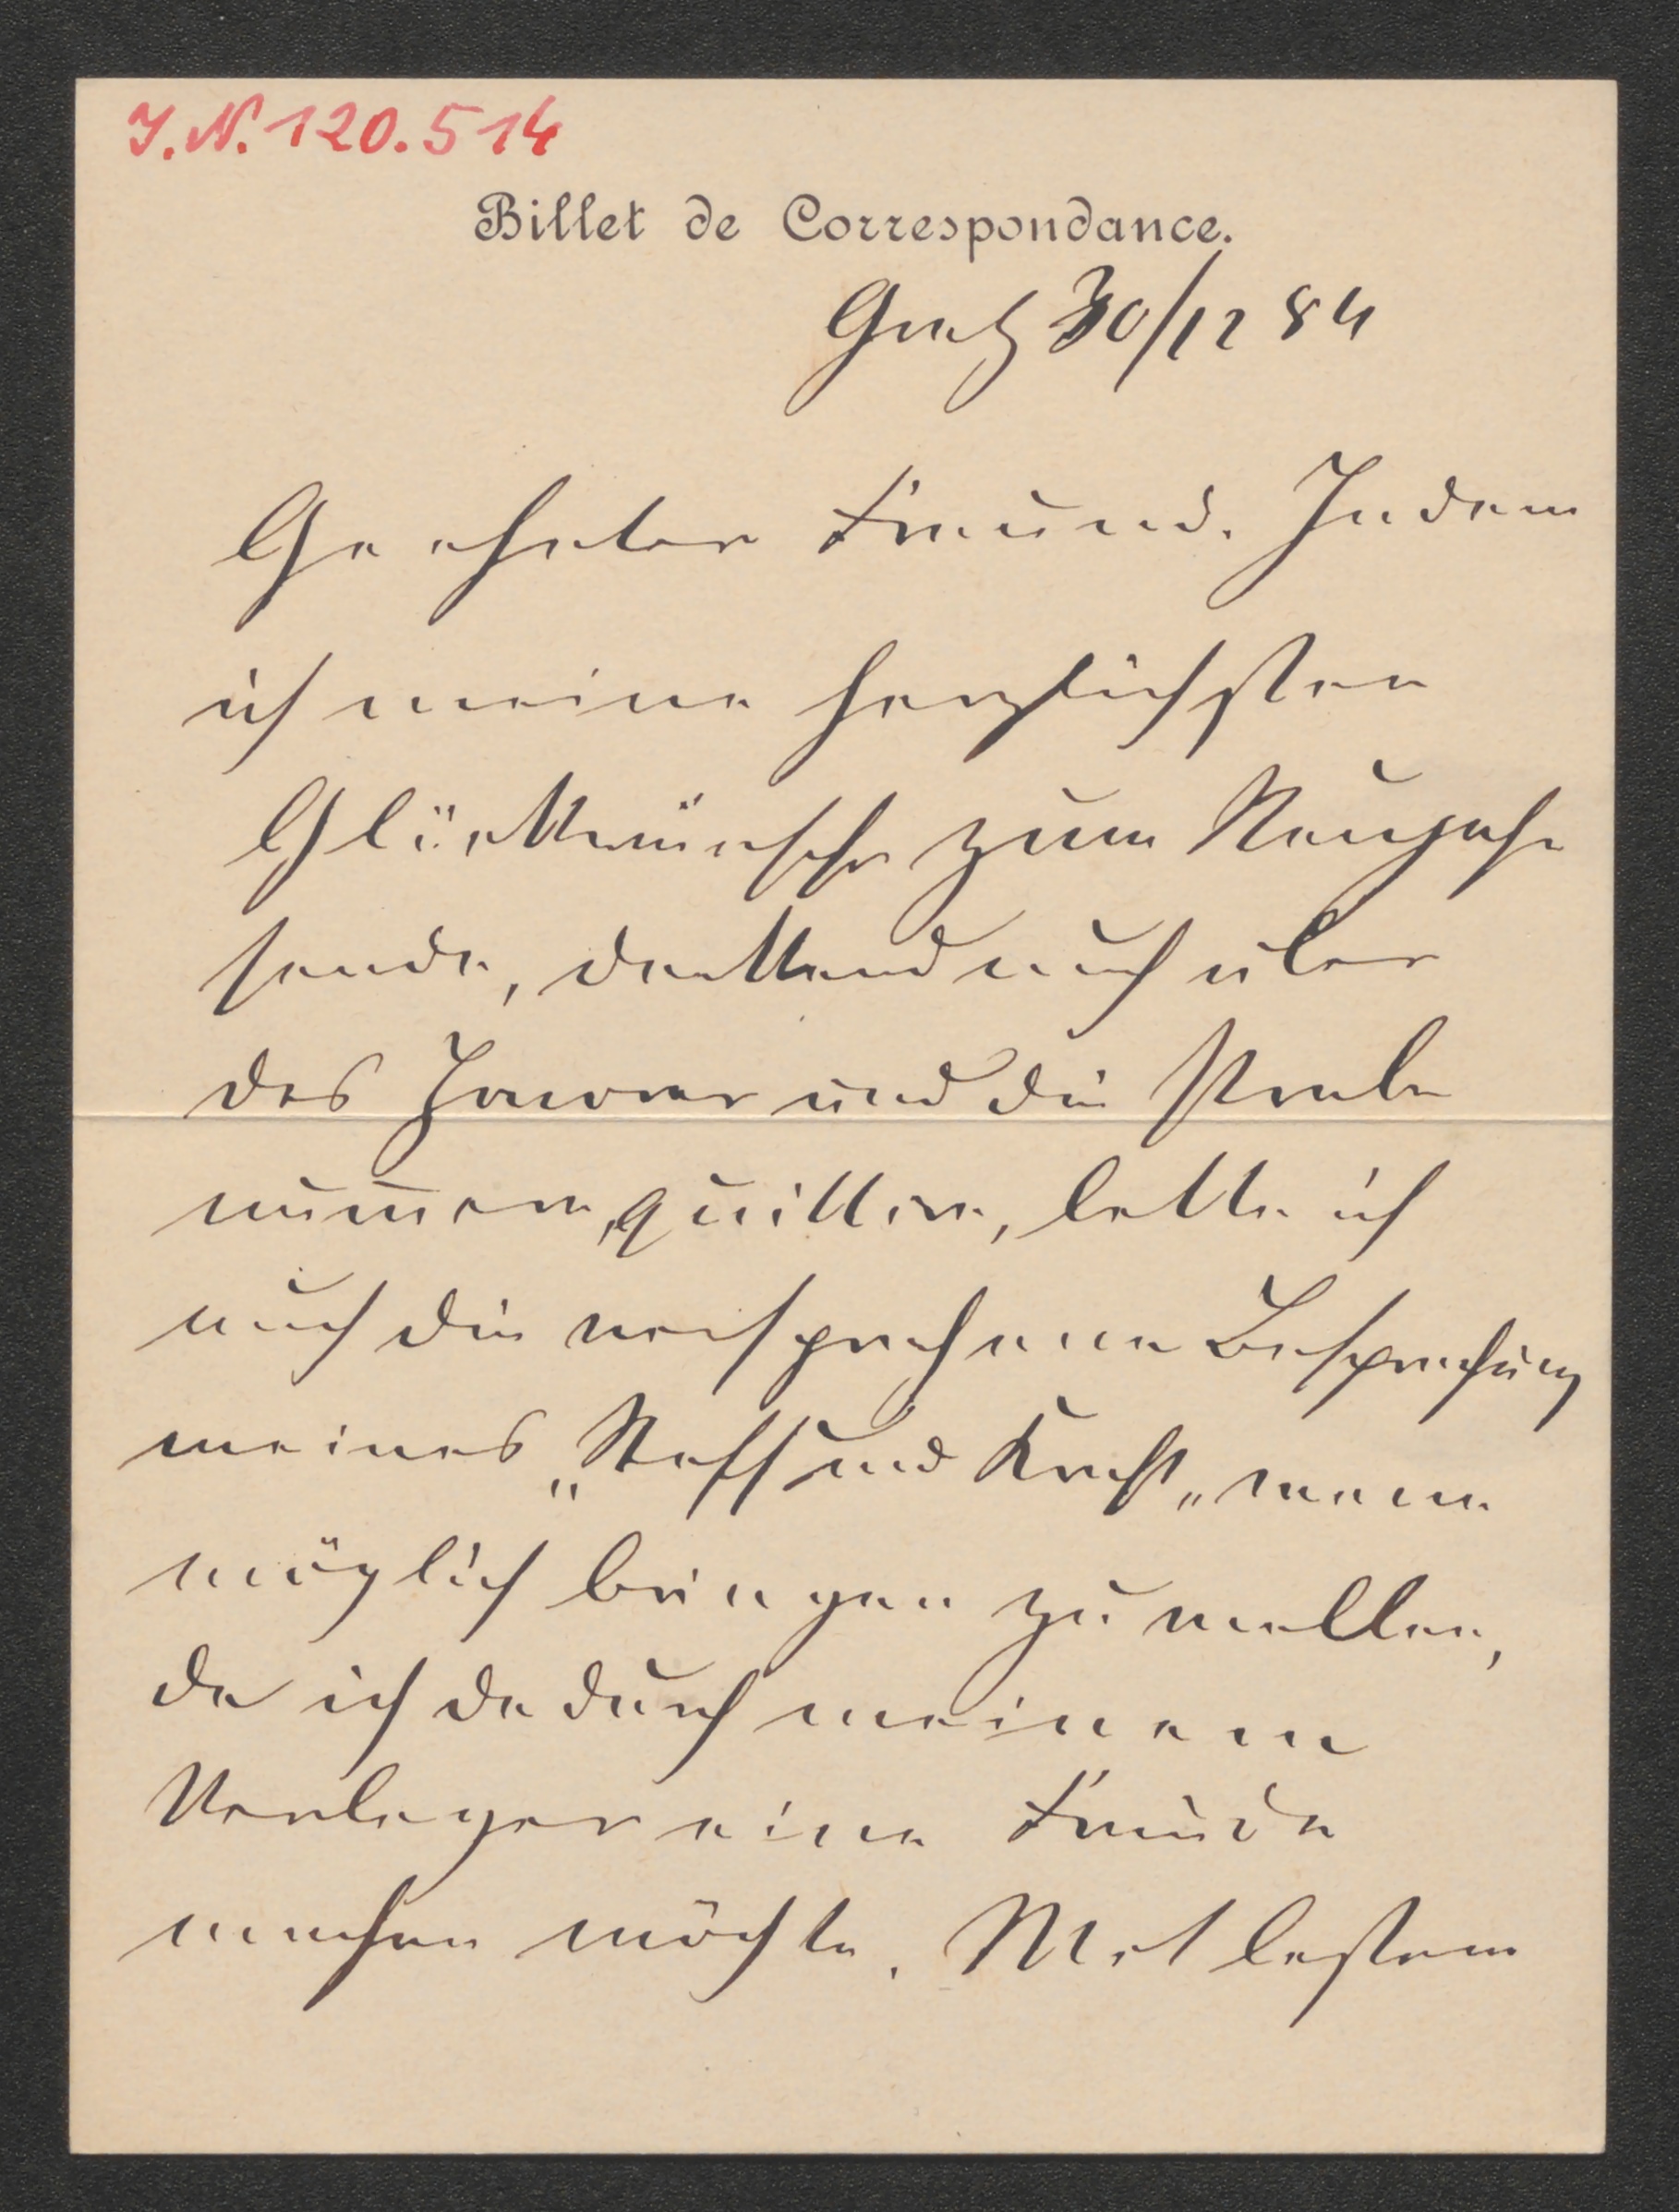 I.N. 120.514
Billet de Correspondance.
Gratz 30/12 84
Geehrter Freund. Indem
ich meine herzlichsten
Glückwünsche zum Neujahr
sende, dankend auch über
das Honorar und die
nummern, quittire, bitte ich
auch die versprochene Besprechung
meines „Stoff und Kraft„ wenn
möglich bringen zu wollen,
da ich dadurch meinem
Verleger eine Freude
machen möchte. Mit bestem